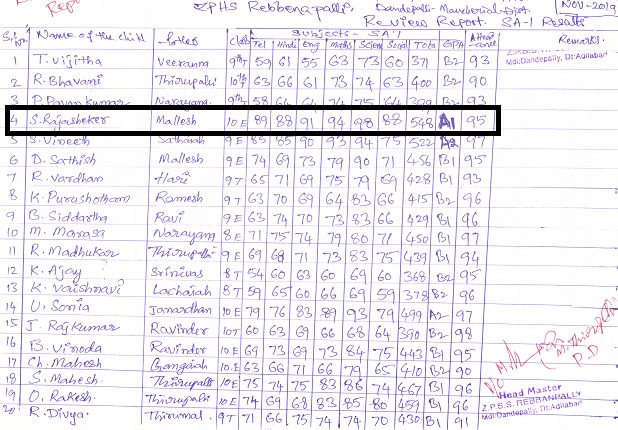 ZPHS Rebbenapally, Dandepally- Mancherial-Dist. NOV-2019
Review Report. SA-1 Results
Subjects - SA-1
S.No Name of the child Father Class Tel Hindi Eng Maths Scien Social Total GPA Attendance Remarks.
1 T. Vijitha Veeranna 9th T 59 61 55 63 73 60 371 B2 93
Z.P.S.S. REBBANPALLY
Mdl:Dandepally, Dt:Adilabad
2 R. Bhavani Thirupathi 10th T 63 66 61 73 74 63 400 B2 90
3 P. Pavan Kumar Narayana 9th T 58 B2 93
4 S. Rajasheker Mallesh 10 E 89 88 91 94 98 88 548 A1 95
5 S. Vineeth Sathaiah 9 E 85 85 90 93 94 75 522 A2 97
6 D. Sathish Mallesh 9 E 74 69 73 79 90 71 456 B1 95
7 R. Vardhan Hari 9 T 65 71 69 75 79 69 428 B1 93
8 K. Purushotham Ramesh 9 T 63 70 69 64 83 66 415 B2 96
9 B. Siddartha Ravi 9 E 63 74 70 73 83 66 429 B1 96
10 M. Manasa Narayana 8 E 71 75 74 79 80 71 450 B1 97
11 R. Madhukar Thirupathi 9 E 69 68 71 73 83 75 439 B1 94
12 K. Ajay Srinivas 8 T 54 60 63 60 69 60 368 B2 95
13 K. Vaishnavi Lachaiah 8 T 59 65 60 66 69 59 378 B2 96
14 U. Sonia Janardhan 10 E 79 76 83 89 93 79 499 A2 97
15 J. Rajkumar Ravinder 10 T 60 63 69 66 68 64 390 B2 98
16 B. Vinoda Ravinder 10 E 73 69 73 73 84 75 443 B1 95
17 Ch. Mahesh Gangaiah 10 E 63 66 71 66 79 65 410 B2 90
18 S. Mahesh. Thirupathi 10 E 75 74 75 83 86 74 467 B1 96
19 O. Rakesh. Thirupathi 10 E 74 69 68 83 85 80 459 B1 96
20 R. Divya. Thirumal 9 T 71 66 75 74 74 70 430 B1 91
P.D
Head Master
Z.P.S.S. REBBANPALLY
Mdl:Dandepally, Dt:Adilabad